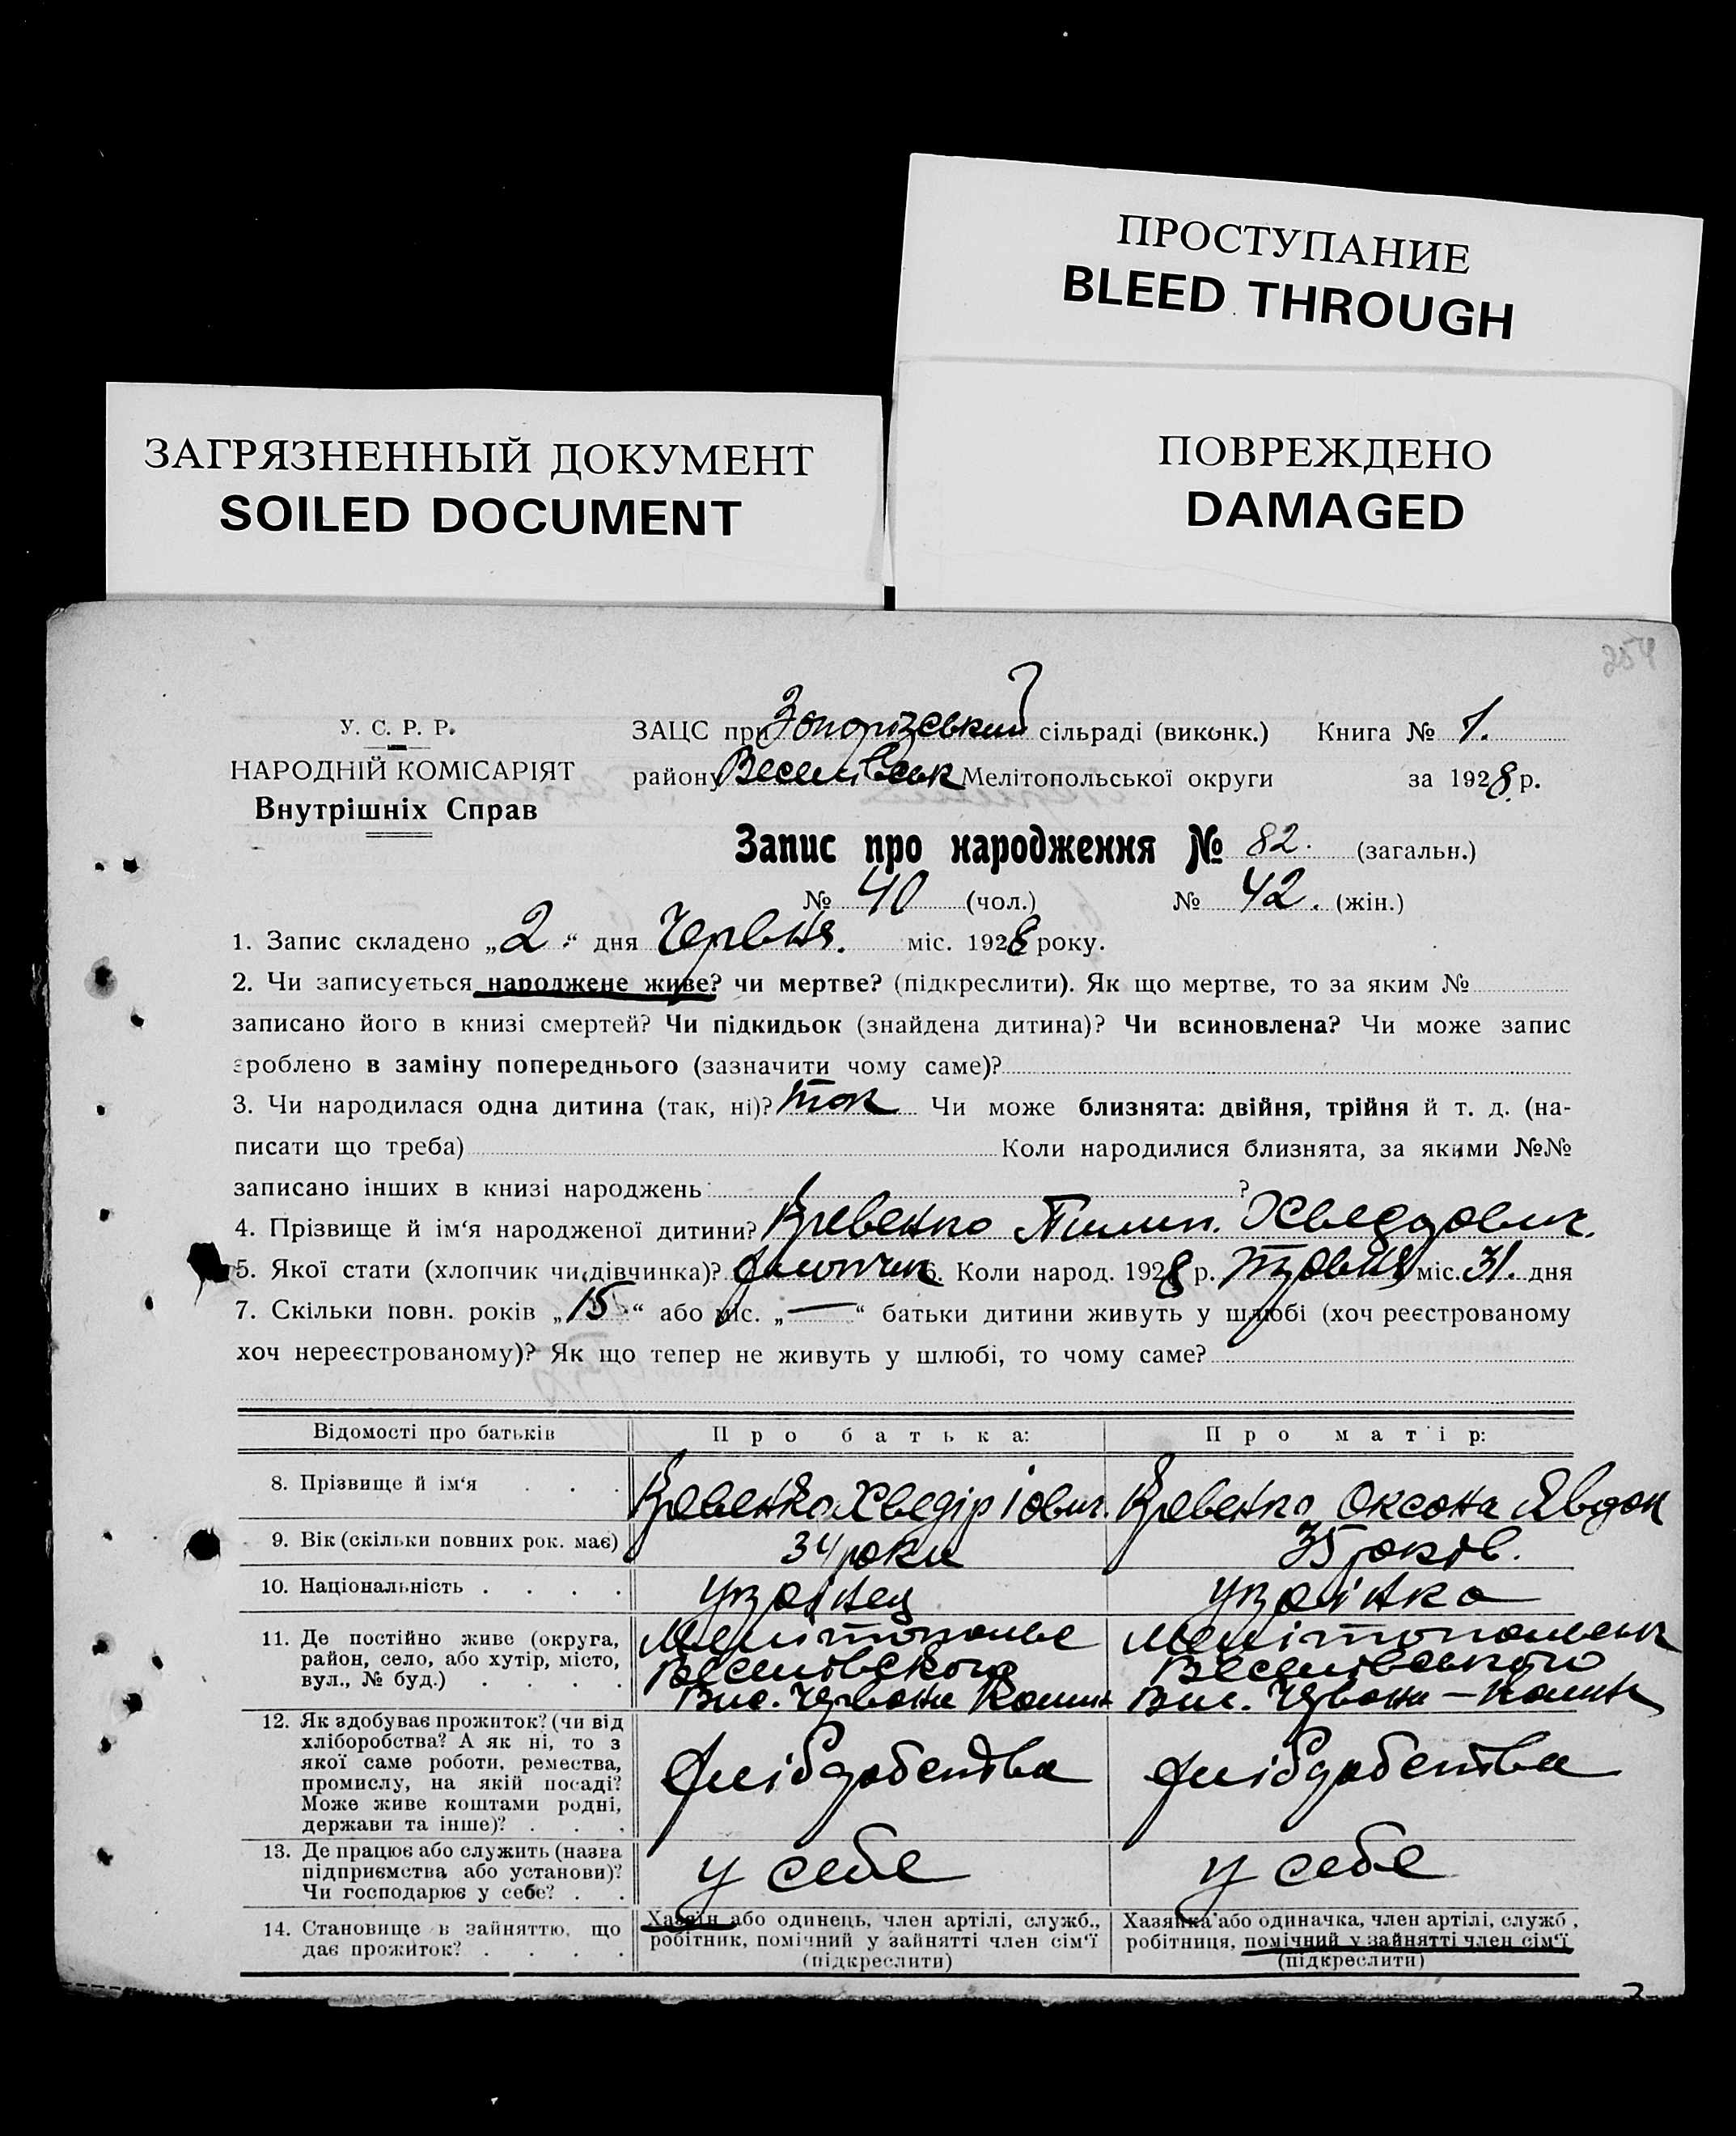 ПРОСТУПАНИЕ
BLEED THROUGH
ЗАГРЯЗНЕННЫЙ ДОКУМЕНТ
SOILED DOCUMENT
ПОВРЕЖДЕНО
DAMAGED
У. С. Р. Р.
НАРОДНІЙ КОМІСАРІЯТ
Внутрішніх Справ
ЗАЦС при сільраді (виконк.) Книга № 1.
району Веселівськ Мелітопольської округи за 1928 р.
Запис про народження № 82. (загальн.)
№ 40 (чол.) № 42. (жін.)
1. Запис складено „2“ дня Червня. міс. 1928 року.
2. Чи записується народжене живе? чи мертве? (підкреслити). Як що мертве, то за яким №
записано його в книзі смертей? Чи підкидьок (знайдена дитина)? Чи всиновлена? Чи може запис
зроблено в заміну попереднього (зазначити чому саме)?
3. Чи народилася одна дитина (так, ні)? так Чи може близнята: двійня, трійня й т. д. (на-
писати що треба) Коли народилися близнята, за якими №№
записано інших в книзі народжень ?
4. Прізвище й ім‘я народженої дитини? Пилип. Хведорович.
5. Якої стати (хлопчик чи дівчинка)? хлопчик 6. Коли народ. 1928 р. травня міс. 31. дня
7. Скільки повн. років „15“ або міс. „—“ батьки дитини живуть у шлюбі (хоч реєстрованому
хоч нереєстрованому)? Як що тепер не живуть у шлюбі, то чому саме?
Відомості про батьків Про батька: Про матір:
8. Прізвище й ім‘я . . . Хведір Оксана Явдок
9. Вік (скільки повних рок. має) 34 роки 35 років.
10. Національність . . . . українец українка
11. Де постійно живе (округа,
район, село, або хутір, місто,
вул., № буд.) . . . .
Веселівського Веселівського
Вис. Червона Вис. Червона
12. Як здобуває прожиток? (чи від
хліборобства? А як ні, то з
якої саме роботи, ремества,
промислу, на якій посаді?
Може живе коштами родні,
держави та інше)? . . .
хліборобства хліборобства
13. Де працює або служить (назва
підприємства або установи)?
Чи господарює у себе? . .
у себе у себе
14. Становище в зайняттю, що
дає прожиток? . . . .
Хазяїн або одинець, член артілі, служб.,
робітник, помічний у зайнятті член сім‘ї
(підкреслити)
Хазяйка або одиначка, член артілі, служб ,
робітниця, помічний у зайнятті член сім‘ї
(підкреслити)